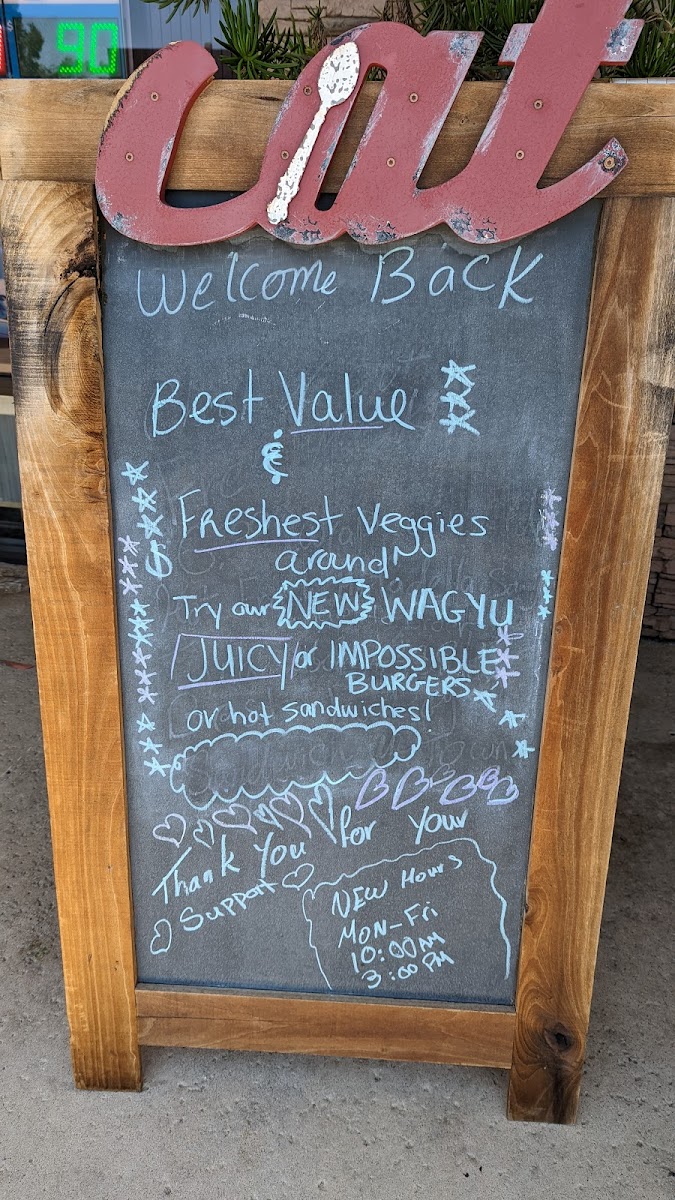 90
eat
Welcome Back
Best Value
&
Freshest Veggies
around
Try our NEW WAGYU
JUICY or IMPOSSIBLE
BURGERS
or hot sandwiches!
Thank You for your
Support
NEW Hours
MON-Fri
10:00AM
3:00 PM